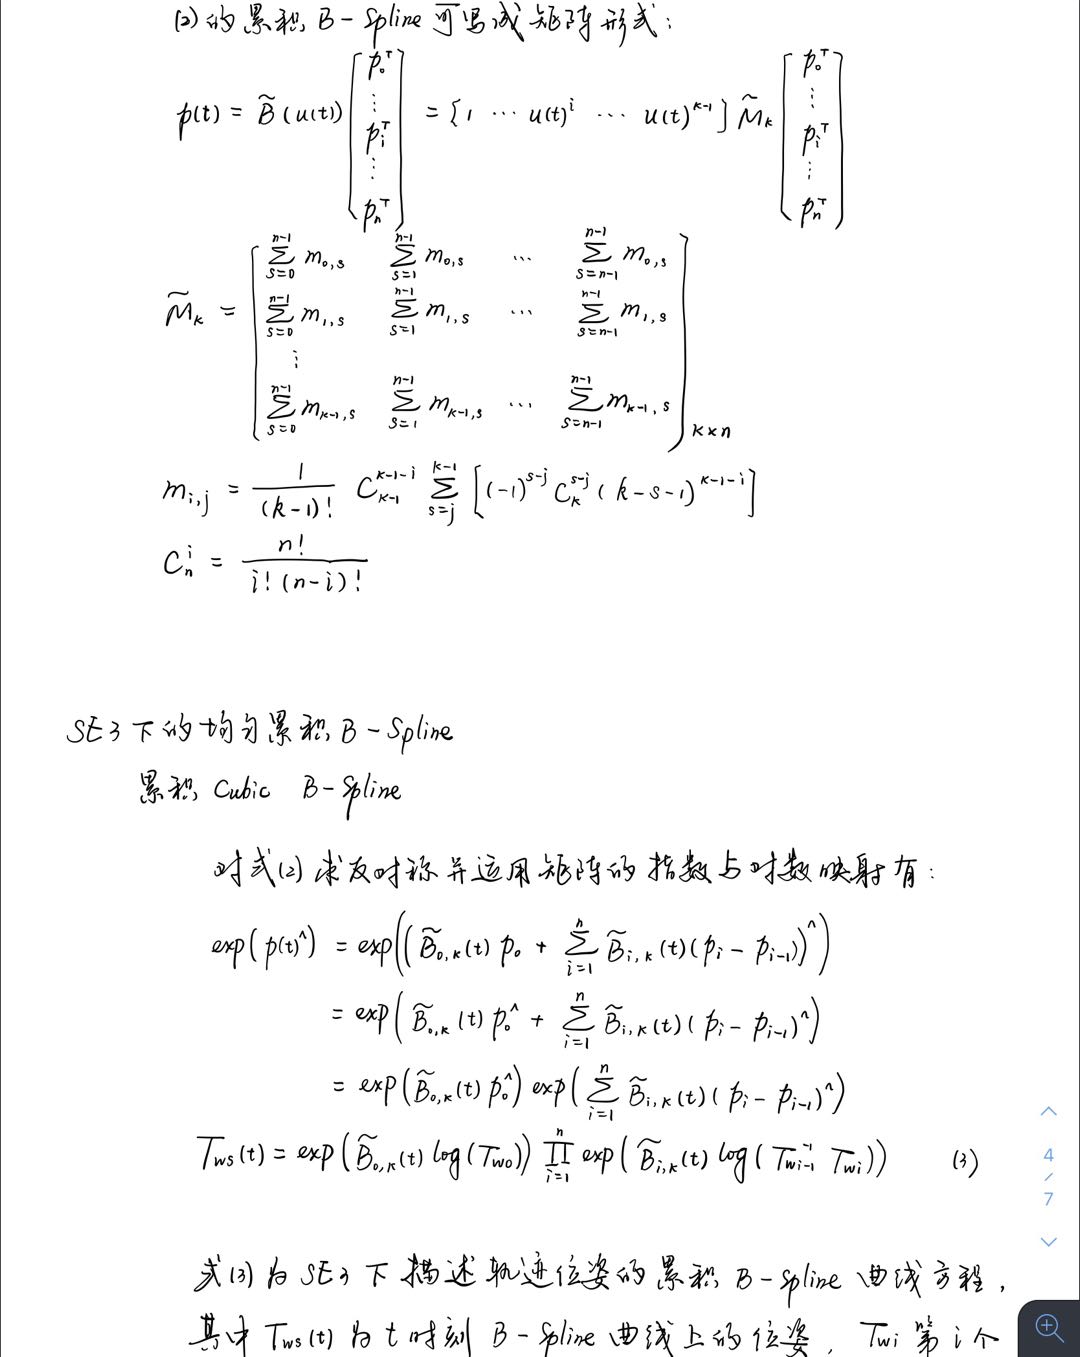 (2)的累积 B-Spline 可写成矩阵形式:
p(t) = B̃(u(t)) [p₀ᵀ ⋮ pᵢᵀ ⋮ pₙᵀ] = [1 ⋯ u(t)ⁱ ⋯ u(t)ᵏ⁻¹] M̃ₖ [p₀ᵀ ⋮ pᵢᵀ ⋮ pₙᵀ]
M̃ₖ = [ Σ_{s=0}^{n-1} m_{0,s} Σ_{s=1}^{n-1} m_{0,s} ⋯ Σ_{s=n-1}^{n-1} m_{0,s}
Σ_{s=0}^{n-1} m_{1,s} Σ_{s=1}^{n-1} m_{1,s} ⋯ Σ_{s=n-1}^{n-1} m_{1,s}
⋮
Σ_{s=0}^{n-1} m_{k-1,s} Σ_{s=1}^{n-1} m_{k-1,s} ⋯ Σ_{s=n-1}^{n-1} m_{k-1,s} ]_{k×n}
m_{i,j} = 1/(k-1)! C_{k-1}^{k-1-i} Σ_{s=j}^{k-1} [(-1)^{s-j} C_k^{s-j} (k-s-1)^{k-1-i}]
C_n^i = n!/(i!(n-i)!)
SE3下的均匀累积 B-Spline
累积 Cubic B-Spline
对式(2)求反对称并运用矩阵的指数与对数映射有:
exp(p(t)^) = exp((B̃_{0,k}(t) p₀ + Σ_{i=1}^{n} B̃_{i,k}(t)(p_i - p_{i-1}))^)
= exp(B̃_{0,k}(t) p₀^ + Σ_{i=1}^{n} B̃_{i,k}(t)(p_i - p_{i-1})^)
= exp(B̃_{0,k}(t) p₀^) exp(Σ_{i=1}^{n} B̃_{i,k}(t)(p_i - p_{i-1})^)
T_{ws}(t) = exp(B̃_{0,k}(t) log(T_{w0})) Π_{i=1}^{n} exp(B̃_{i,k}(t) log(T_{wi-1}^{-1} T_{wi})) (3)
式(3)为SE3下描述轨迹位姿的累积 B-Spline 曲线方程,
其中 T_{ws}(t) 为 t 时刻 B-Spline 曲线上的位姿, T_{wi} 第 i 个
4
/
7